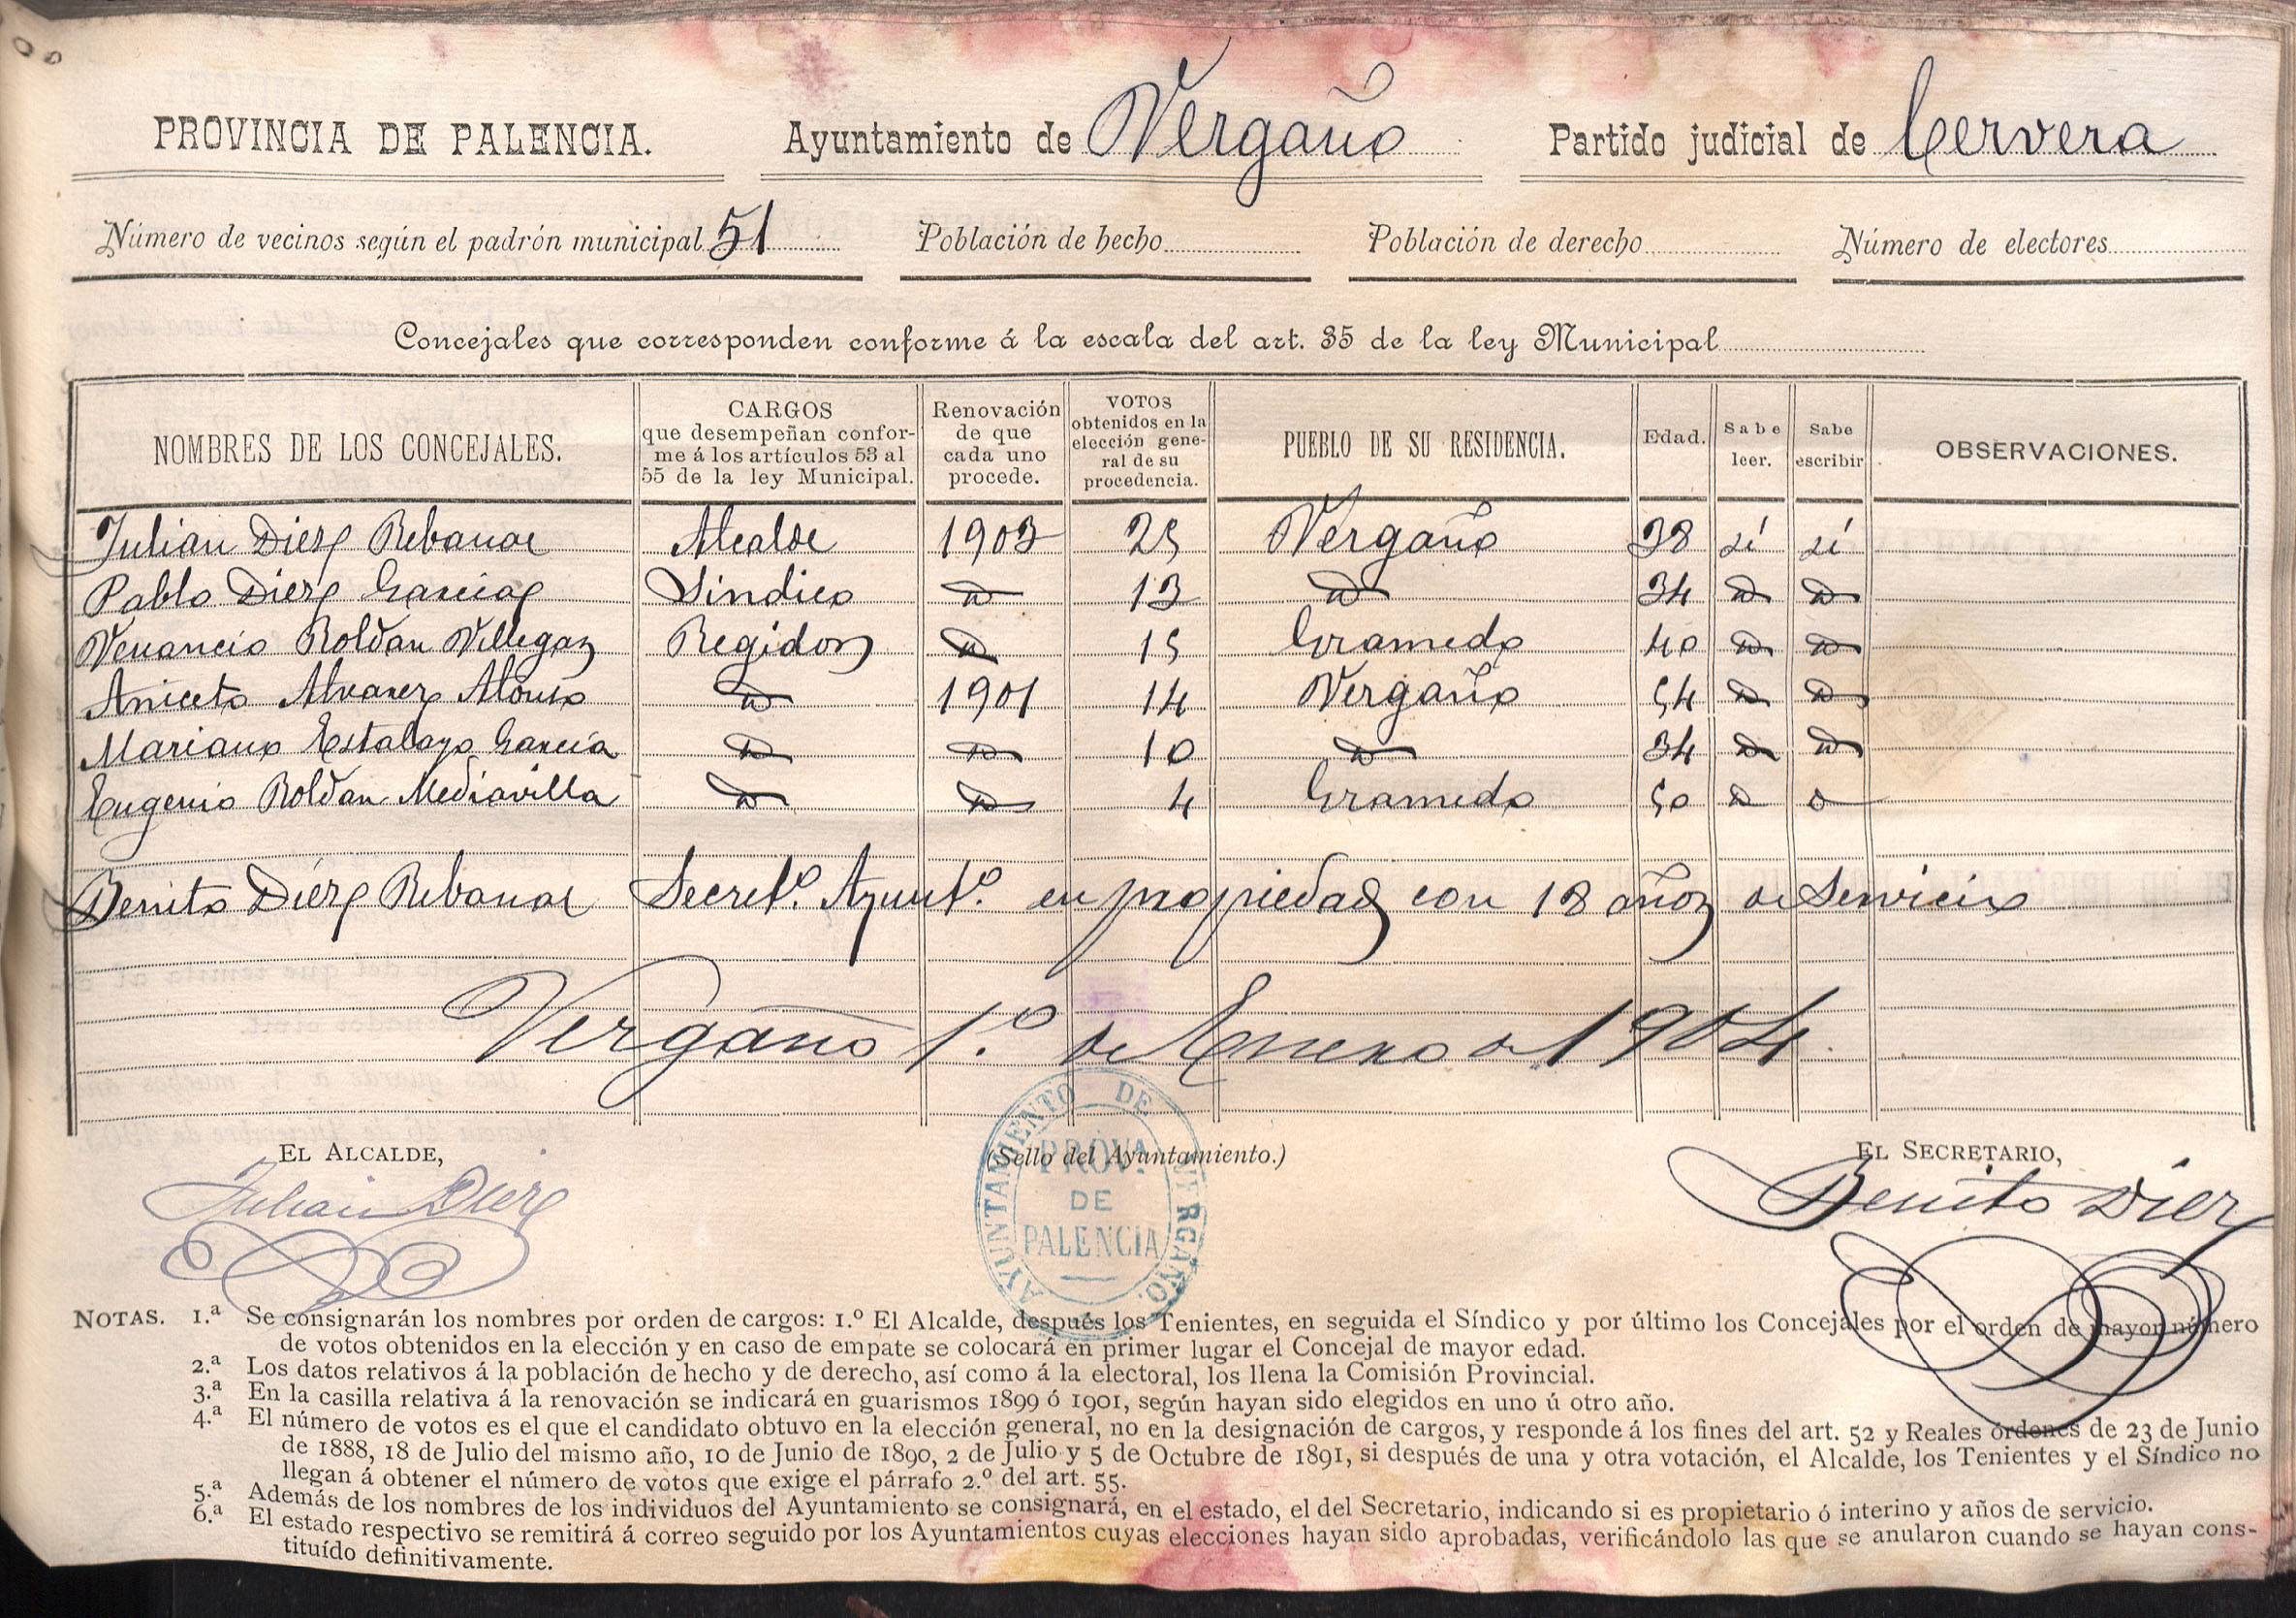 PROVINCIA DE PALENCIA. Ayuntamiento de Vergaño Partido judicial de Cervera
Número de vecinos según el padrón municipal 51 Población de hecho Población de derecho Número de electores
Concejales que corresponden conforme á la escala del art. 35 de la ley Municipal
NOMBRES DE LOS CONCEJALES. CARGOS que desempeñan conforme á los artículos 53 al 55 de la ley Municipal. Renovación de que cada uno procede. VOTOS obtenidos en la elección general de su procedencia. PUEBLO DE SU RESIDENCIA. Edad. Sabe leer. Sabe escribir OBSERVACIONES.
Julian Diez Rebanal Alcalde 1903 25 Vergaño 38 sí sí
Pablo Diez Garcia Sindico 13 34
Venancio Roldan Villegas Regidor 15 Gramedo 40
Aniceto Alvarez Alonso 1901 14 Vergaño 54
Mariano Estalayo García 10 34
Eugenio Roldan Mediavilla 4 Gramedo 50
Benito Díez Rebanal Secret.º Ayunt.º en propiedad con 18 años de Servicio
Vergaño 1.º de Enero de 1904.
EL ALCALDE, (Sello del Ayuntamiento.) EL SECRETARIO,
Julian Diez
Benito Diez
AYUNTAMIENTO DE VERGAÑO.
PROVA.
DE
PALENCIA
NOTAS. 1.ª Se consignarán los nombres por orden de cargos: 1.º El Alcalde, después los Tenientes, en seguida el Síndico y por último los Concejales por el orden de mayor número
de votos obtenidos en la elección y en caso de empate se colocará en primer lugar el Concejal de mayor edad.
2.ª Los datos relativos á la población de hecho y de derecho, así como á la electoral, los llena la Comisión Provincial.
3.ª En la casilla relativa á la renovación se indicará en guarismos 1899 ó 1901, según hayan sido elegidos en uno ú otro año.
4.ª El número de votos es el que el candidato obtuvo en la elección general, no en la designación de cargos, y responde á los fines del art. 52 y Reales órdenes de 23 de Junio
de 1888, 18 de Julio del mismo año, 10 de Junio de 1890, 2 de Julio y 5 de Octubre de 1891, si después de una y otra votación, el Alcalde, los Tenientes y el Síndico no
llegan á obtener el número de votos que exige el párrafo 2.º del art. 55.
5.ª Además de los nombres de los individuos del Ayuntamiento se consignará, en el estado, el del Secretario, indicando si es propietario ó interino y años de servicio.
6.ª El estado respectivo se remitirá á correo seguido por los Ayuntamientos cuyas elecciones hayan sido aprobadas, verificándolo las que se anularon cuando se hayan cons-
tituído definitivamente.